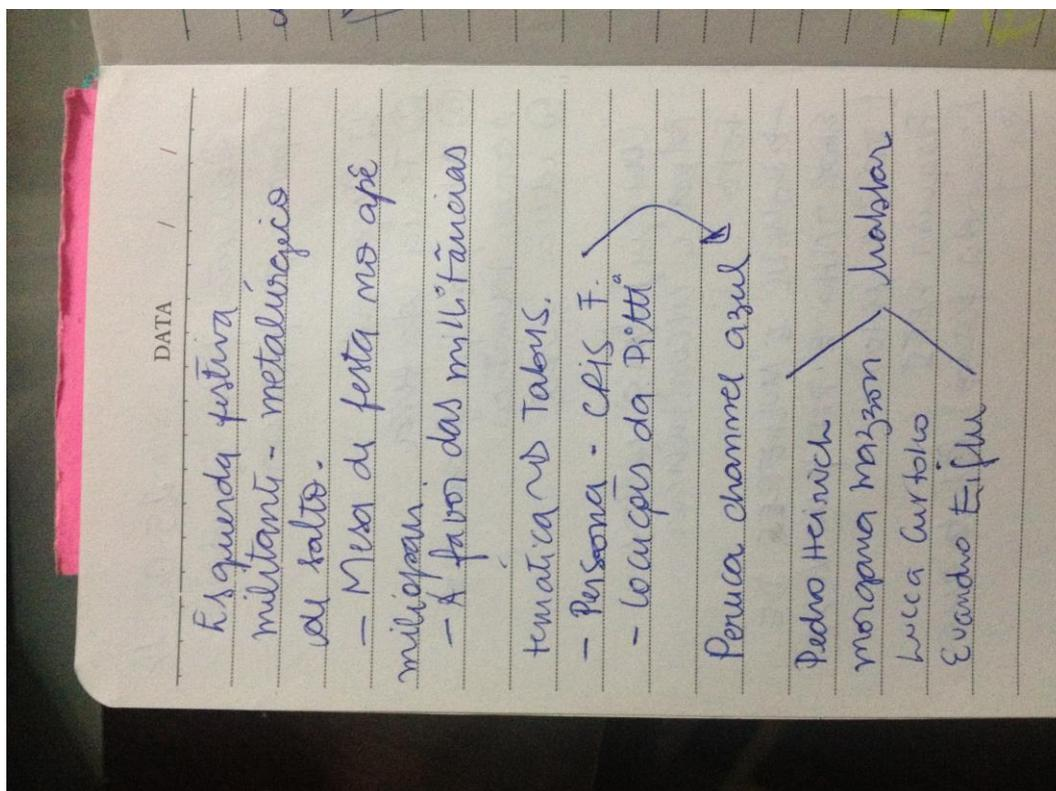 DATA / /
Esquerda festiva
militante - metalúrgico
de salto.
- Mesa de festa no apê
- A favor das militâncias
temática ~> Tabus.
- Persona - CRIS F.
- Locuções da Pitta
Peruca channel azul
Pedro Heinrich
Morgana Mazzon
habblar
Lucca Curtolo
Evandro Eifler